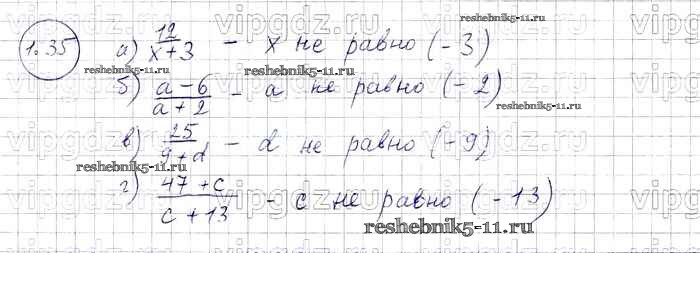 1.35
а) 12/(x+3) – x не равно (-3)
б) (a-6)/(a+2) – a не равно (-2)
в) 25/(9+d) – d не равно (-9)
г) (47+c)/(c+13) – c не равно (-13)
reshebnik5-11.ru
reshebnik5-11.ru
reshebnik5-11.ru
reshebnik5-11.ru
reshebnik5-11.ru
reshebnik5-11.ru
vipgdz.ru